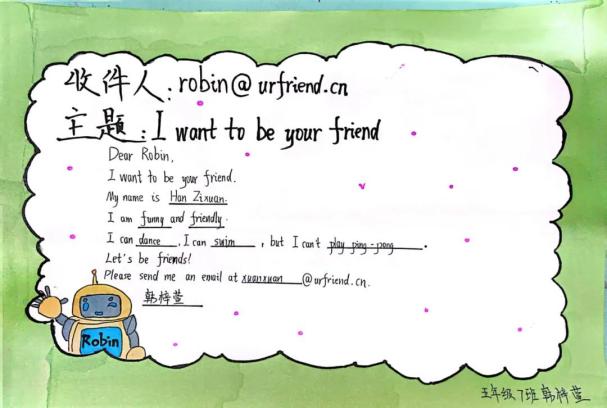 收件人:robin@urfriend.cn
主题:I want to be your friend
Dear Robin,
I want to be your friend.
My name is Han Zixuan.
I am funny and friendly.
I can dance, I can swim, but I can't play ping-pong.
Let's be friends!
Please send me an email at xuanxuan@urfriend.cn.
韩梓萱
Robin
五年级7班韩梓萱